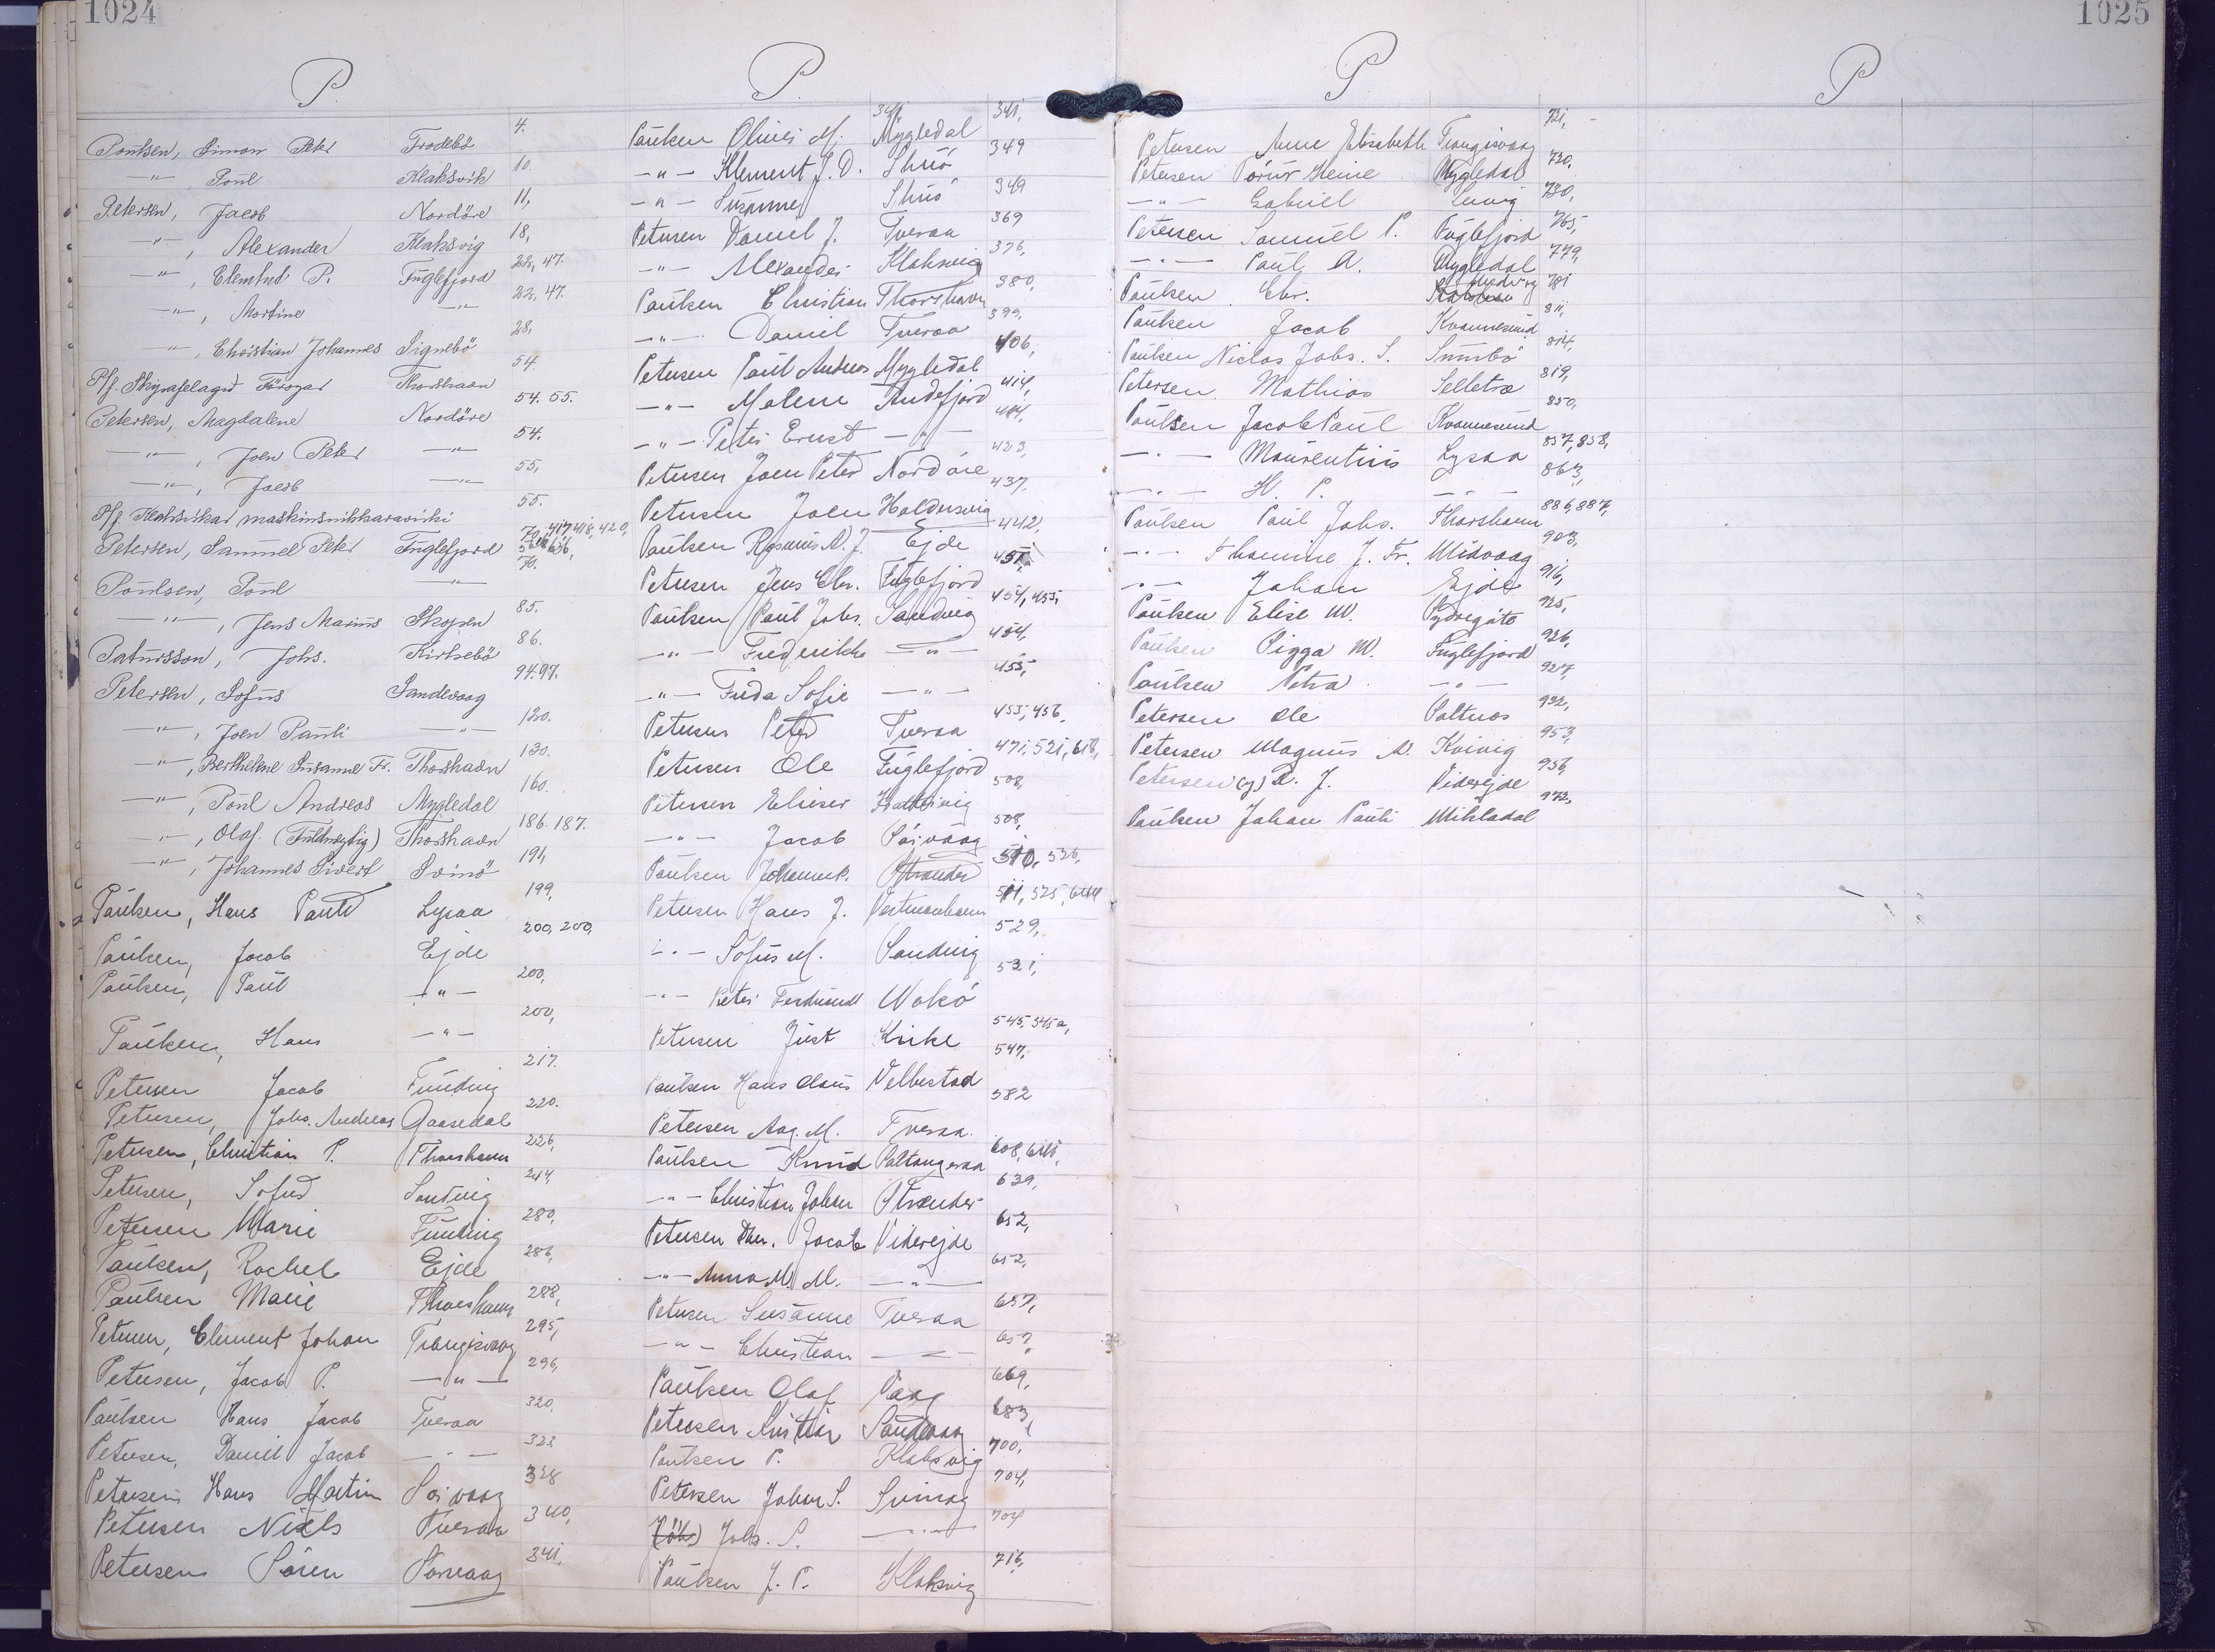 1024
P.
Poulsen, Simon Peter Trodebö 4.
—"— Poul Klaksvik 10.
Petersen, Jacob Nordöre 11,
—"—, Alexander Klaksvig 18,
—"—, Clement P. Fuglefjord 22, 47.
—"—, Mortine —"— 22, 47.
—"—, Christian Johannes Signebö 28,
P/f. Skipafelagið Föroyar Thorshavn 54
Petersen, Magdalene Nordöre 54. 55.
—"—, Joen Peter —"— 54.
—"—, Jacob —"— 55,
P/f. Klaksvikar maskinsnikkaravirki 55.
Petersen, Samuel Peter Fuglefjord
Poulsen, Poul —"— 70.
—"—, Jens Marius Skopen 85.
Patursson, Johs. Kirkebö 86.
Petersen, Sofus Sandevaag 94. 97.
—"—, Joen Pauli —"— 120.
—"—, Berthiline Susanne Fr. Thorshavn 130.
—"—, Poul Andreas Mygledal 160.
—"—, Olaf. (Fuldmægtig) Thorshavn 186. 187.
—"—, Johannes Sivert Svinö 191,
Paulsen, Hans Lysaa 199,
Paulsen, Jacob Ejde 200, 200,
Paulsen, Paul —"— 200,
Paulsen, Hans —"— 200,
Petersen Jacob Funding 217.
Petersen, Johs. Andreas Gaasedal 220.
Petersen, Christian P. Thorshavn 226,
Petersen, Sofus Sandvig 244,
Petersen Marie Funding 280,
Paulsen, Rachel Ejde 286,
Paulsen Marie Thorshavn 288,
Petersen, Clement Johan Trangisvaag 295,
Petersen, Jacob P. —"— 296,
Paulsen Hans Jacob Tveraa 320,
Petersen, Daniel Jacob —"— 323
Petersen Hans Martin Sörvaag 328
Petersen Niels Tveraa 340,
Petersen Sören Sörvaag 341,
P.
Paulsen Oliver M. Mygledal 341,
—"— Klement J. D. Skuö 349
—"— Susanne Skuö 349
Petersen Daniel J. Tveraa 369
—"— Alexander Klaksvig 376,
Paulsen Christian Thorshavn 380,
—"— Daniel Tveraa 399,
Petersen Paul Andreas Mygledal 406,
—"— Malene Andefjord 414,
—"— Peter Ernst —"— 414,
Petersen Joen Peter Nordöre 423,
Petersen Joen Haldersvig 437.
Paulsen Rasmus A. J. Ejde 442,
Petersen Jens Chr. Fuglefjord 451,
Paulsen Paul Johs. Sandvig 454, 455,
—"— Frederikke —"— 454,
—"— Frida Sofie —"— 455,
Petersen Peter Tveraa 455, 456,
Petersen Ole Fuglefjord 471, 521, 618,
Petersen Elieser 508,
—"— Jacob Sörvaag 508,
Paulsen Strænder 526,
Petersen Hans J. Vestmanhavn 511, 525,
—"— Sofus M. Sandvig 529,
—"— Peter Ferdinand Nolsö 531,
Petersen Just Kirke 545, 545a,
Paulsen Hans Claus Velbestad 547,
Petersen Aag. M. Tveraa 582
Paulsen Knud 608,
—"— Christian Johan Strænder 639,
Petersen Dan. Jacob Viderejde 652,
—"— Anna M. M. —"— 652,
Petersen Susanne Tveraa 657,
—"— Christian —"— 657,
Paulsen Olaf Vaag 669,
Petersen Kristian Sandevaag 683,
Paulsen P. Klaksvig 700,
Petersen Johan S. Svinaa 704,
Johs. S. —"— 704
Paulsen J. P. Klaksvig 716,
1025
P
Petersen Anne Elisabeth Trangisvaag 721,
Petersen Heine Mygledal 720,
—"— Gabriel 730,
Petersen Samuel P. Fuglefjord 765,
—"— Paul A. Mygledal 779,
Paulsen Chr. 781
Paulsen Jacob Kvannesund 811,
Paulsen Niclas Johs. S. Sumbö 814,
Petersen Mathias Selletræ 819,
Paulsen Jacob Paul Kvannesund 850,
—"— Maurentius Lysaa 857, 858,
—"— H. P. —"— 863,
Paulsen Paul Johs. Thorshavn 886, 887,
—"— Thomine J. Fr. Midvaag 903,
—"— Johan Ejde 916,
Paulsen Elise M. Sydregöte 925,
Paulsen Sigga M. Fuglefjord 926,
Paulsen Petra —"— 927,
Petersen Ole Saltnes 932,
Petersen Magnus A. Kvivig 953,
Petersen D. J. Viderejde 956,
Paulsen Johan Pauli Mikladal 972,
P